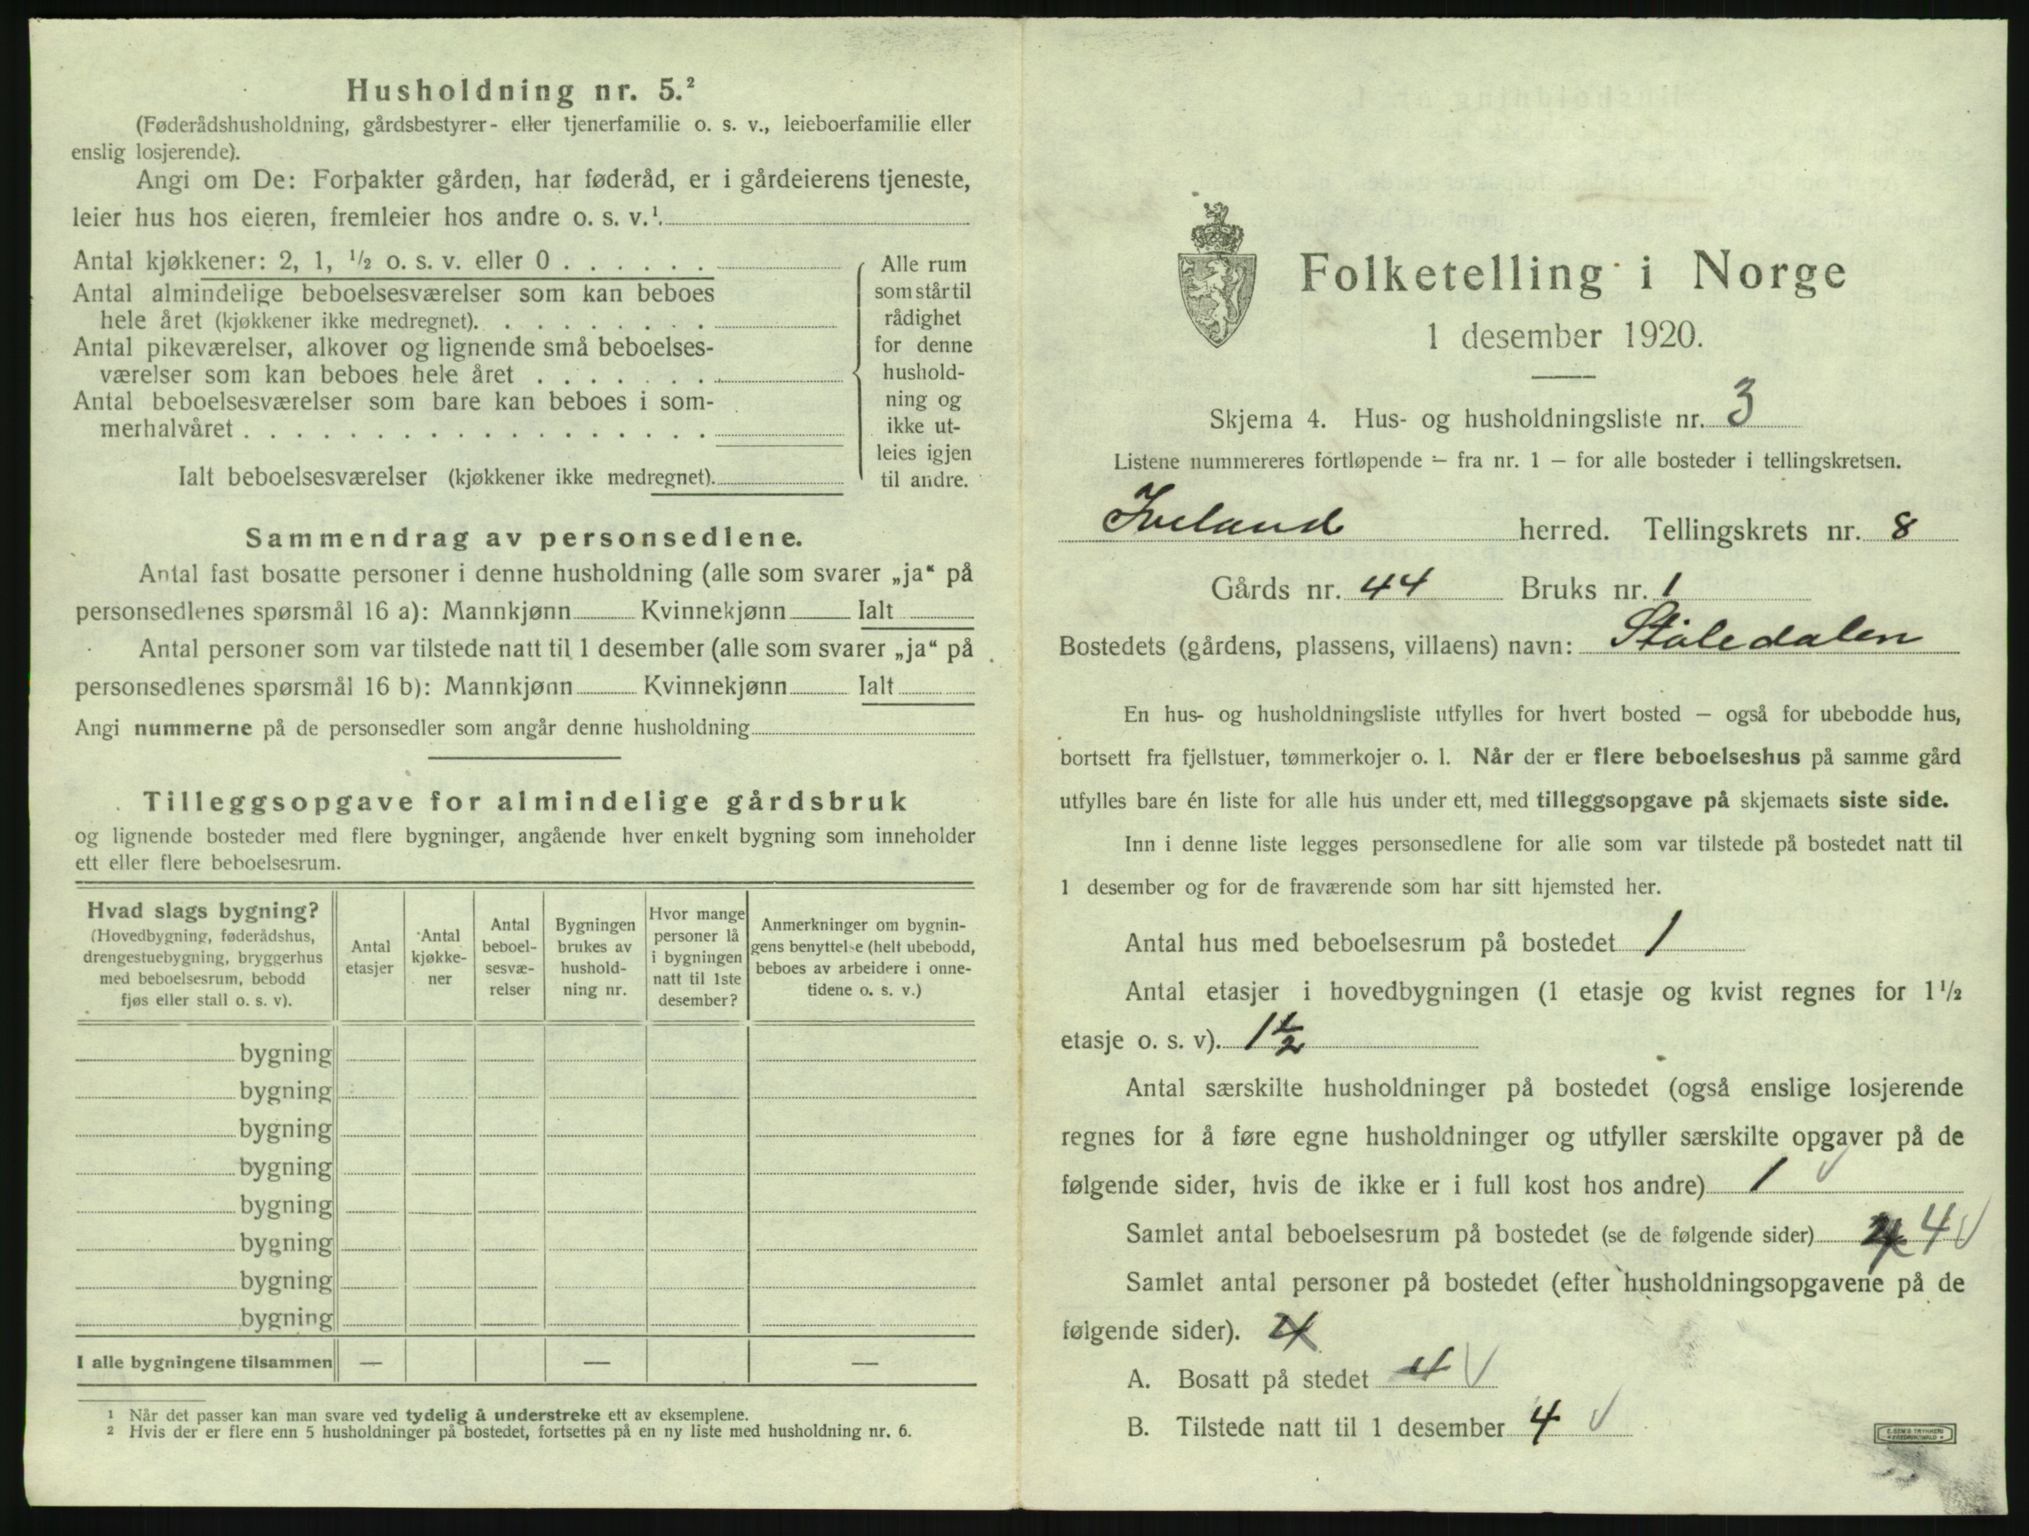 Husholdning nr. 5.²
(Føderådshusholdning, gårdsbestyrer- eller tjenerfamilie o. s. v., leieboerfamilie eller
enslig losjerende).
Angi om De: Forpakter gården, har føderåd, er i gårdeierens tjeneste,
leier hus hos eieren, fremleier hos andre o. s. v.¹.
Antal kjøkkener: 2, 1, ½ o. s. v. eller 0 . . . . . .
Antal almindelige beboelsesværelser som kan beboes
hele året (kjøkkener ikke medregnet). . . . . . . . .
Antal pikeværelser, alkover og lignende små beboelses-
værelser som kan beboes hele året . . . . . . .
Antal beboelsesværelser som bare kan beboes i som-
merhalvåret . . . . . . . . . . . . . . . . . .
Ialt beboelsesværelser (kjøkkener ikke medregnet).
Alle rum
som står til
rådighet
for denne
hushold-
ning og
ikke ut-
leies igjen
til andre.
Sammendrag av personsedlene.
Antal fast bosatte personer i denne husholdning (alle som svarer „ja“ på
personsedlenes spørsmål 16 a): Mannkjønn Kvinnekjønn Ialt
Antal personer som var tilstede natt til 1 desember (alle som svarer „ja“ på
personsedlenes spørsmål 16 b): Mannkjønn Kvinnekjønn Ialt
Angi nummerne på de personsedler som angår denne husholdning
Tilleggsopgave for almindelige gårdsbruk
og lignende bosteder med flere bygninger, angående hver enkelt bygning som inneholder
ett eller flere beboelsesrum.
Hvad slags bygning?
(Hovedbygning, føderådshus,
drengestuebygning, bryggerhus
med beboelsesrum, bebodd
fjøs eller stall o. s. v).
Antal
etasjer
Antal
kjøkke-
ner
Antal
beboel-
sesvæ-
relser
Bygningen
brukes av
hushold-
ning nr.
Hvor mange
personer lå
i bygningen
natt til 1ste
desember?
Anmerkninger om bygnin-
gens benyttelse (helt ubebodd,
beboes av arbeidere i onne-
tidene o. s. v.)
bygning
bygning
bygning
bygning
bygning
bygning
bygning
bygning
I alle bygningene tilsammen — — —
¹ Når det passer kan man svare ved tydelig å understreke ett av eksemplene.
² Hvis der er flere enn 5 husholdninger på bostedet, fortsettes på en ny liste med husholdning nr. 6.
Folketelling i Norge
1 desember 1920.
Skjema 4. Hus- og husholdningsliste nr. 3
Listene nummereres fortløpende — fra nr. 1 — for alle bosteder i tellingskretsen.
Iveland herred. Tellingskrets nr. 8
Gårds nr. 44 Bruks nr. 1
Bostedets (gårdens, plassens, villaens) navn: Ståledalen
En hus- og husholdningsliste utfylles for hvert bosted — også for ubebodde hus,
bortsett fra fjellstuer, tømmerkojer o. l. Når der er flere beboelseshus på samme gård
utfylles bare én liste for alle hus under ett, med tilleggsopgave på skjemaets siste side.
Inn i denne liste legges personsedlene for alle som var tilstede på bostedet natt til
1 desember og for de fraværende som har sitt hjemsted her.
Antal hus med beboelsesrum på bostedet 1
Antal etasjer i hovedbygningen (1 etasje og kvist regnes for 1½
etasje o. s. v). 1½
Antal særskilte husholdninger på bostedet (også enslige losjerende
regnes for å føre egne husholdninger og utfyller særskilte opgaver på de
følgende sider, hvis de ikke er i full kost hos andre) 1
Samlet antal beboelsesrum på bostedet (se de følgende sider) 4
Samlet antal personer på bostedet (efter husholdningsopgavene på de
følgende sider).
A. Bosatt på stedet 4
B. Tilstede natt til 1 desember 4